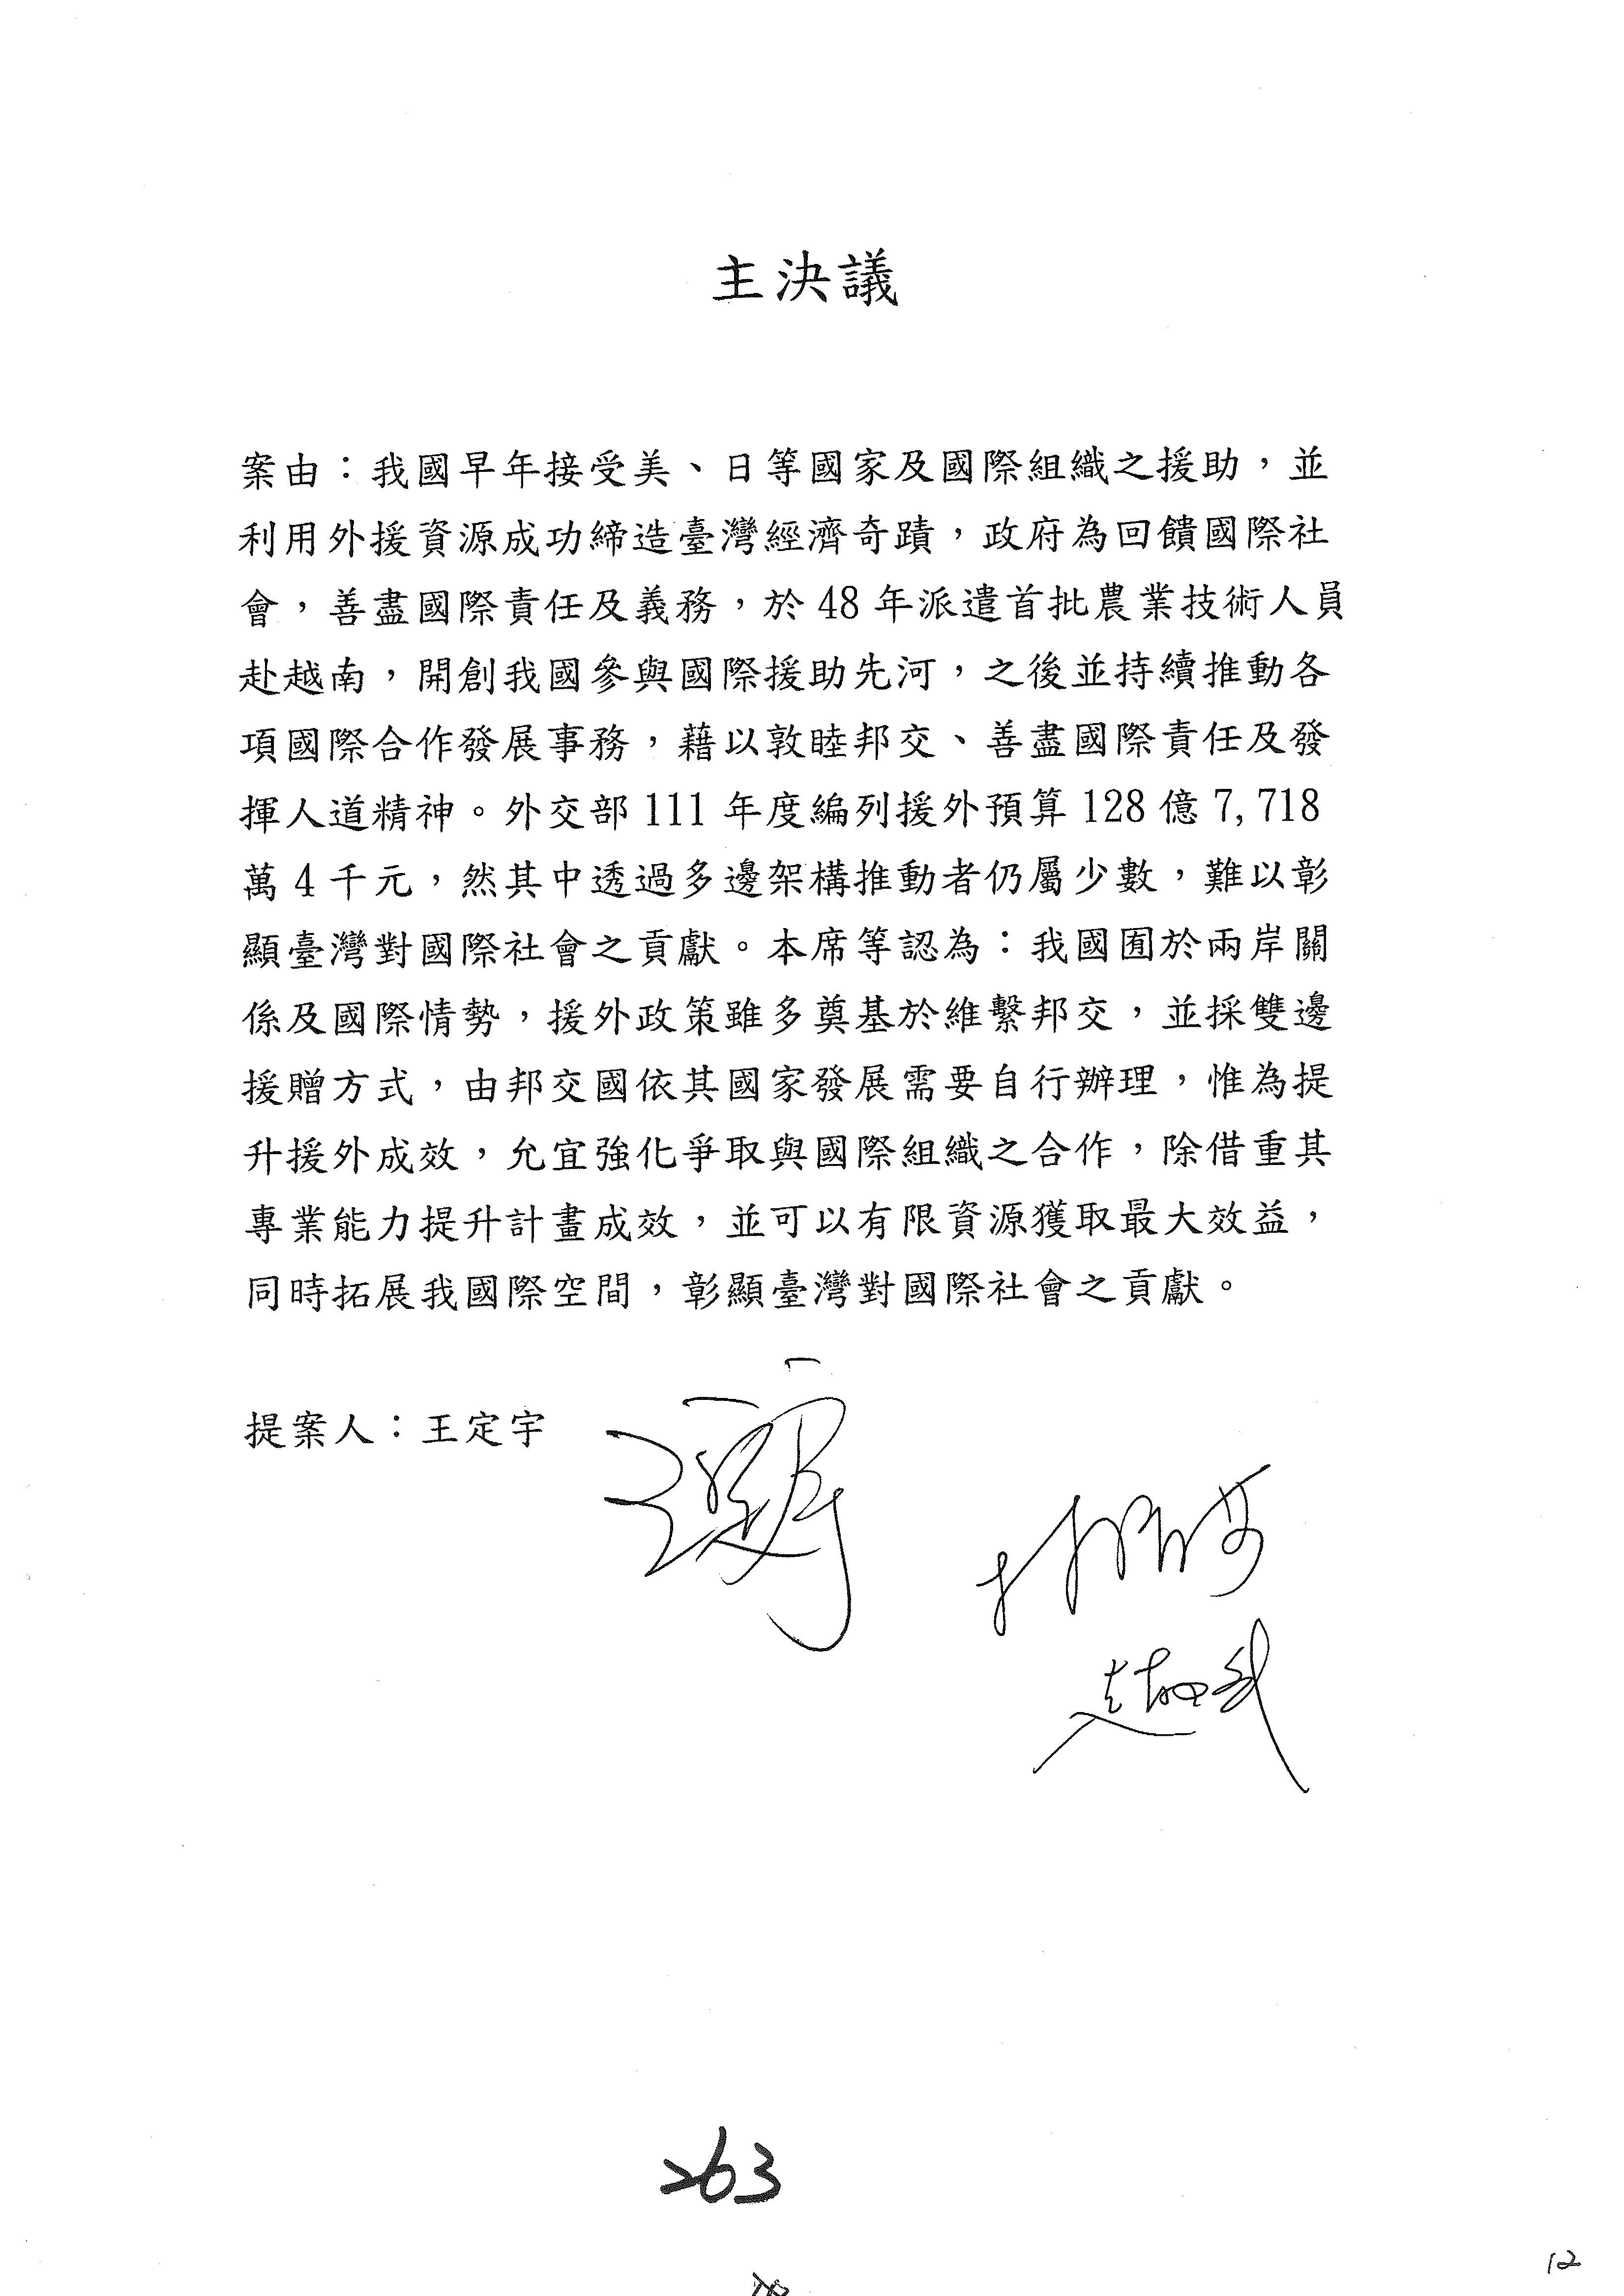 主決議
案由：我國早年接受美、日等國家及國際組織之援助，並
利用外援資源成功締造臺灣經濟奇蹟，政府為回饋國際社
會，善盡國際責任及義務，於48年派遣首批農業技術人員
赴越南，開創我國參與國際援助先河，之後並持續推動各
項國際合作發展事務，藉以敦睦邦交、善盡國際責任及發
揮人道精神。外交部111年度編列援外預算128億7,718
萬4千元，然其中透過多邊架構推動者仍屬少數，難以彰
顯臺灣對國際社會之貢獻。本席等認為：我國囿於兩岸關
係及國際情勢，援外政策雖多奠基於維繫邦交，並採雙邊
援贈方式，由邦交國依其國家發展需要自行辦理，惟為提
升援外成效，允宜強化爭取與國際組織之合作，除借重其
專業能力提升計畫成效，並可以有限資源獲取最大效益，
同時拓展我國際空間，彰顯臺灣對國際社會之貢獻。
提案人：王定宇
263
12